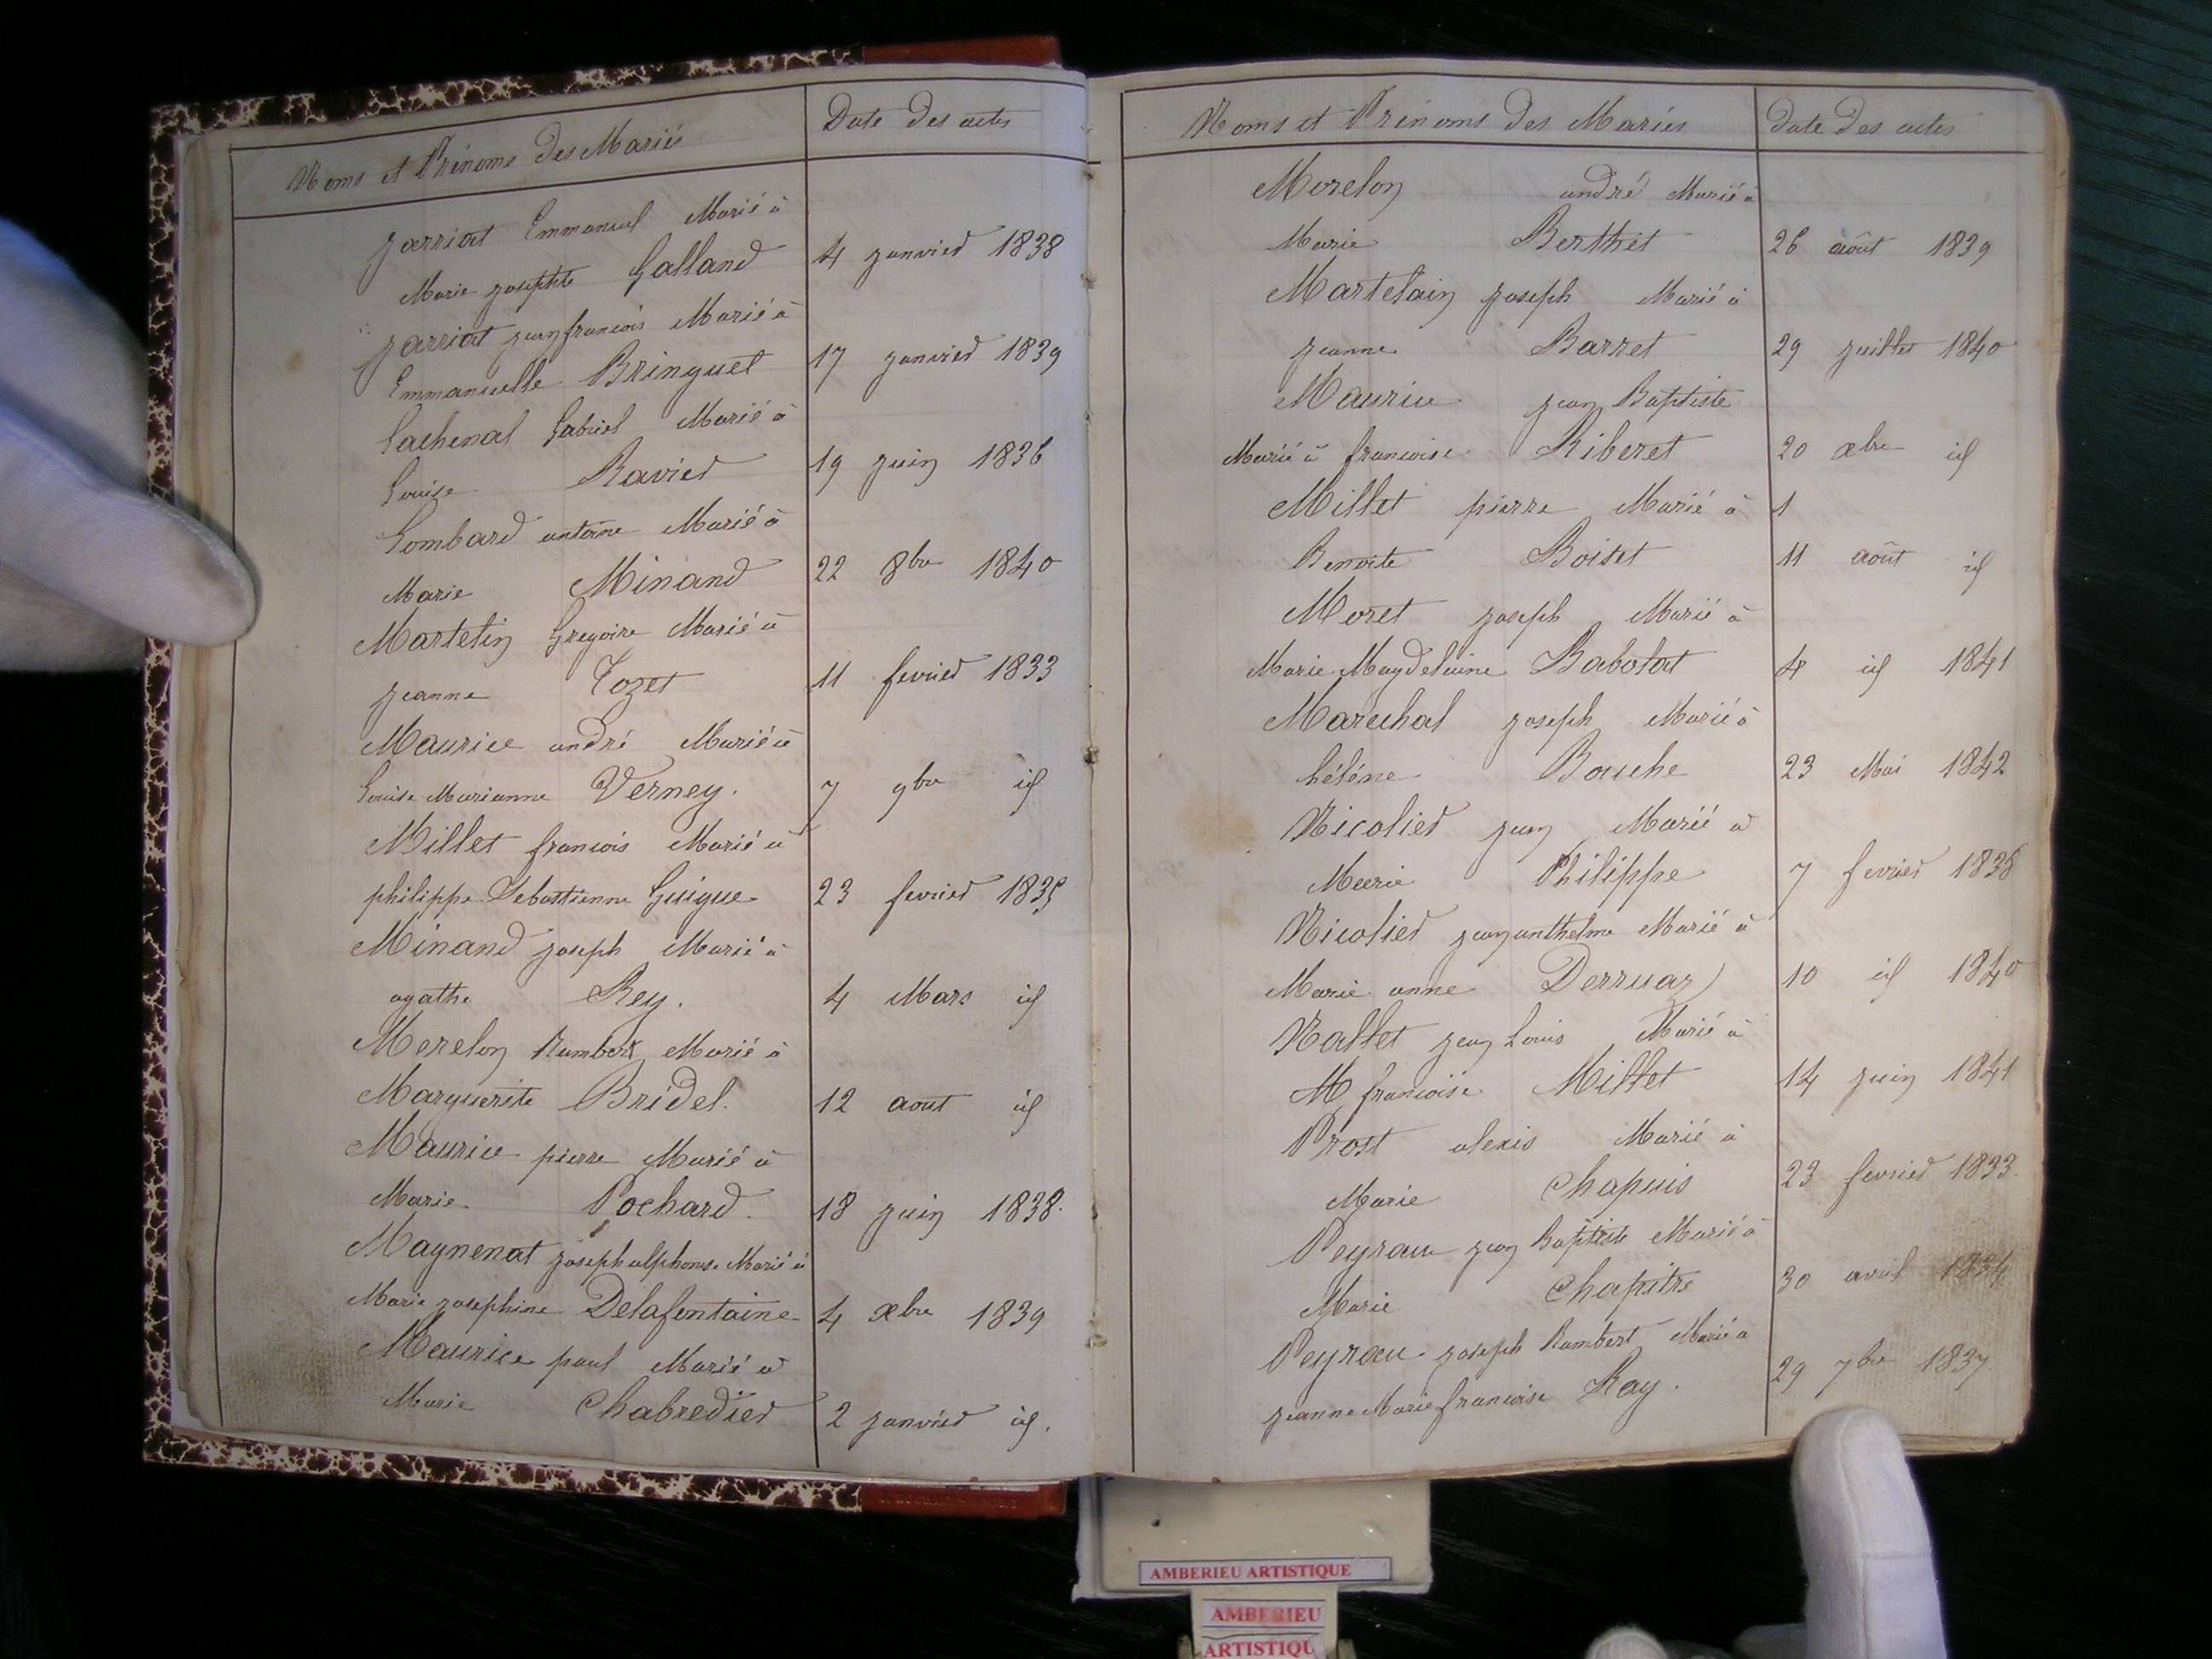 Noms et Prénoms des Mariés
Date des actes
Jarriat Emmanuel Marié à
Marie Josephte Galland 4 Janvier 1838
Jarriat Jean francois Marié à
Emmanuelle Bringuet 17 Janvier 1839
Lachenal Gabriel Marié à
Louise Ravier 19 Juin 1836
Lombard antoine Marié à
Marie Minand 22 8bre 1840
Martelin Gregoire Marié à
Jeanne Tozet 11 fevrier 1833
Maurice andré Marié à
Louise Marianne Verney. 7 9bre id
Millet francois Marié à
philippe Sebastienne Guigue 23 fevrier 1835
Minand Joseph Marié à
agathe Rey. 4 Mars id
Merelon Rambert Marié à
Marguerite Bridel. 12 aout id
Maurice pierre Marié à
Marie Pochard. 18 Juin 1838.
Magnenat Joseph alphonse Marié à
Marie Josephine Delafontaine 4 xbre 1839
Maurice paul Marié à
Marie Chabredier 2 Janvier id.
Noms et Prénoms des Mariés
Date des actes
Morelon andré Marié à
Marie Berthet 26 août 1839
Martelain Joseph Marié à
Jeanne Barret 29 Juillet 1840
Maurice Jean Baptiste
Marié à francoise Riberet 20 xbre id
Millet pierre Marié à 1
Benoite Boitet 11 août id
Moret Joseph Marié à
Marie Magdeleine Babolat 4 id 1841
Marechal Joseph Marié à
hélène Bouche 23 Mai 1842
Nicolier Jean Marié à
Marie Philippe 7 fevrier 1838
Nicolier Jean anthelme Marié à
Marie anne Derruaz 10 id 1840
Nallet Jean Louis Marié à
M francoise Millet 14 Juin 1841
Prost alexis Marié à
Marie Chapuis 23 fevrier 1833.
Peyrau Jean Baptiste Marié à
Marie Chapitre 30 avril 1834
Peyrau Joseph Rambert Marié à
Jeanne Marie francoise Ray. 29 7bre 1837
AMBERIEU ARTISTIQUE
AMBERIEU
ARTISTIQU